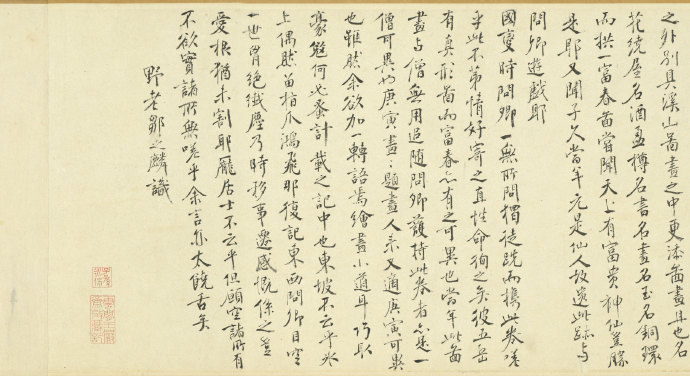 之外別具溪山圖畫之中更添圖畫且也名
花繞屋名酒盈樽名書名畫名玉名銅環
而拱一富春圖嘗聞天上有富貴神仙豈勝
是耶又聞子久當年元是仙人故遺此跡与
問卿遊戲耶
國變時問卿一無所問獨徒跣而攜此卷嗟
乎此不第情好寄之直性命徇之矣彼五岳
有真形圖而富春亦有之可異也當年此圖
畫与僧無用追隨問卿護持此卷者亦是一
僧可異也庚寅畫題畫人來又適庚寅可異
也雖然余欲加一轉語焉繪畫小道耳巧取
豪奪何必蚤計載之記中也東坡不云乎冰
上偶然留指爪鴻飛那復記東西問卿目空
一世胸絕纖塵乃時移事遷感慨係之豈
愛根猶未割耶龐居士不云乎但願空諸所有
不欲實諸所無嗟乎余言亦太饒舌矣
野老鄒之麟識